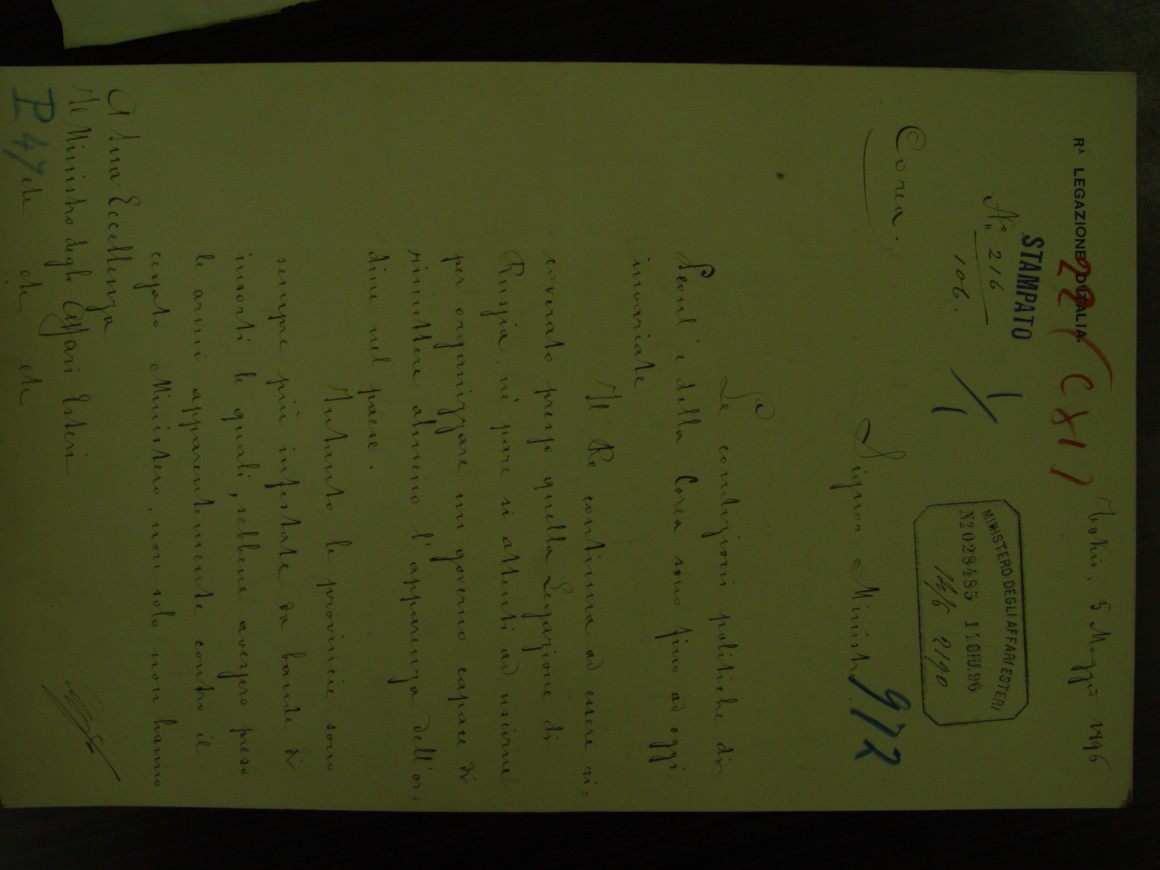 Rª LEGAZIONE D'ITALIA.
22 (CXI)
Tokio, 5 Maggio 1896
STAMPATO
Nº 216
106.
1/1
MINISTERO DEGLI AFFARI ESTERI
Nº 028485 11 GIU. 96
14/6 2190
Corea.
Signor Ministro
972
Le condizioni politiche di
Seoul e della Corea sono fino ad oggi
invariate
Il Re continua ad essere ri=
coverato presso quella Legazione di
Russia, nè pare si attenti ad uscirne
per organizzare un governo capace di
rimettere almeno l'apparenza dell'or=
dine nel paese.
Intanto le provincie sono
sempre più infestate da bande di
insorti le quali, sebbene avessero preso
le armi apparentemente contro il
cessato Ministero, non solo non hanno
A Sua Eccellenza
Il Ministro degli Affari Esteri
etc etc etc
P 47